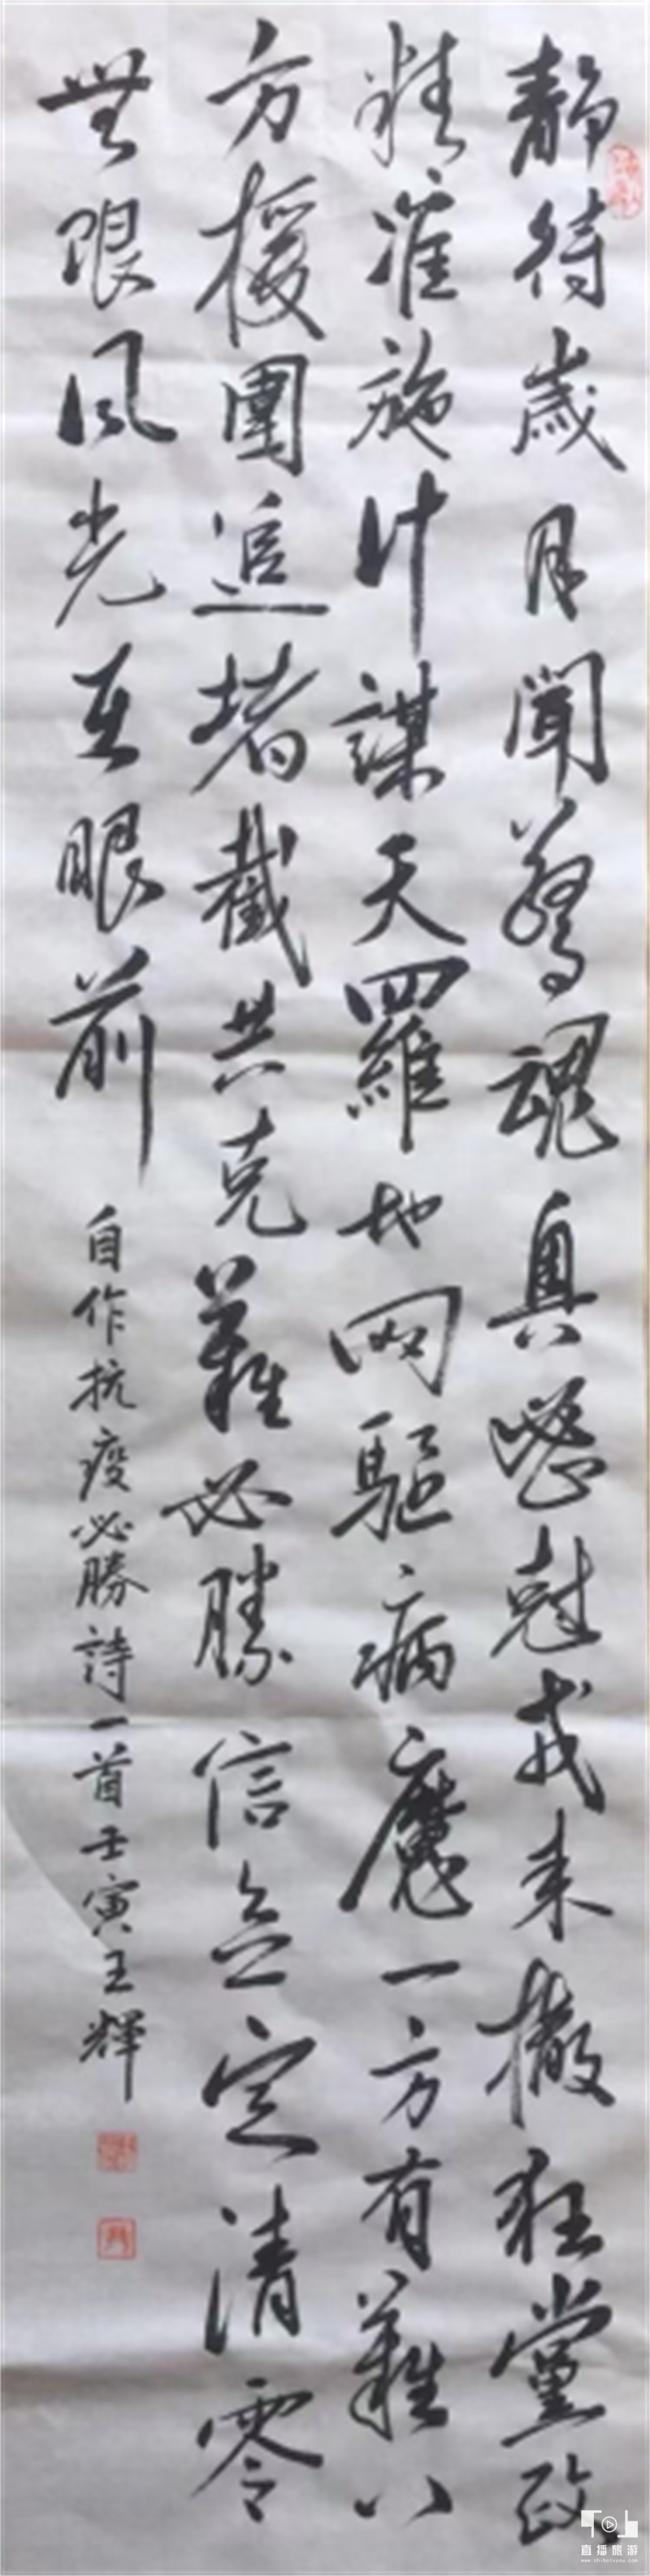 靜待歲月聞驚魂奥密尅戎来撒狂黨政
精准施计謀天羅地网驅病魔一方有難八
方援圍追堵截共克難必勝信念定清零
無限风光在眼前
自作抗疫必勝詩一首壬寅王輝
直播旅游